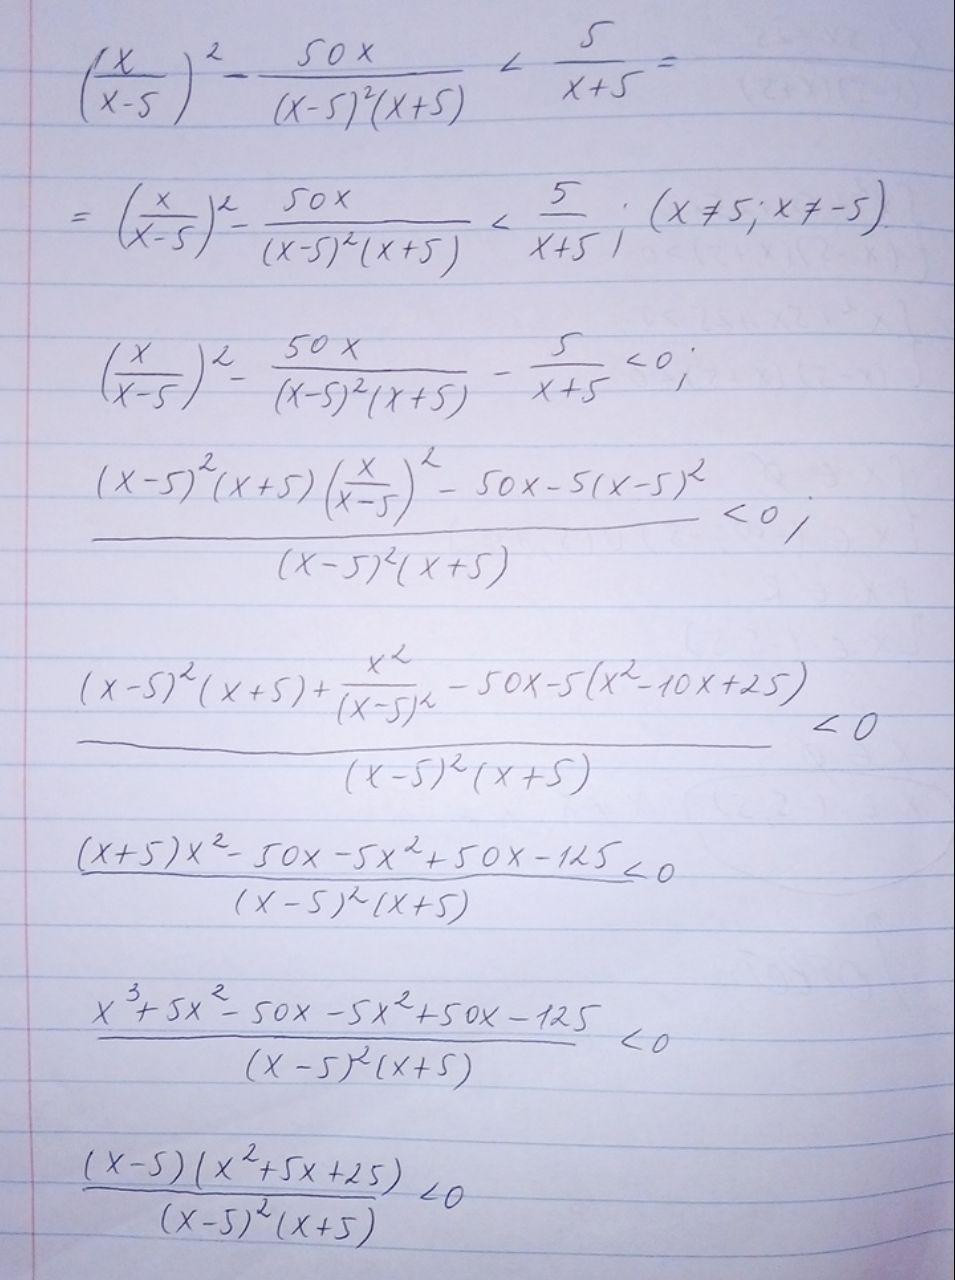 (x/(x-5))² - 50x/((x-5)²(x+5)) < 5/(x+5) =
= (x/(x-5))² - 50x/((x-5)²(x+5)) < 5/(x+5); (x≠5; x≠-5)
(x/(x-5))² - 50x/((x-5)²(x+5)) - 5/(x+5) <0;
((x-5)²(x+5)(x/(x-5))² - 50x-5(x-5)²)/((x-5)²(x+5)) <0;
((x-5)²(x+5)+x²/(x-5)² - 50x-5(x²-10x+25))/((x-5)²(x+5)) <0
((x+5)x²-50x-5x²+50x-125)/((x-5)²(x+5)) <0
(x³+5x²-50x-5x²+50x-125)/((x-5)²(x+5)) <0
((x-5)(x²+5x+25))/((x-5)²(x+5)) <0